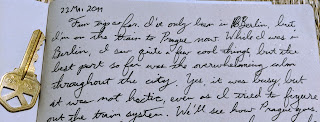 22 Mai, 2011
Fun my so far. I've only been in Berlin, but
I'm on the train to Prague now. While I was in
Berlin, I saw quite a few cool things, but the
best part so far was the overwhelming calm
throughout the city. Yes, it was busy, but
it was not hectic, even as I tried to figure
out the train system. We'll see how Prague goes.